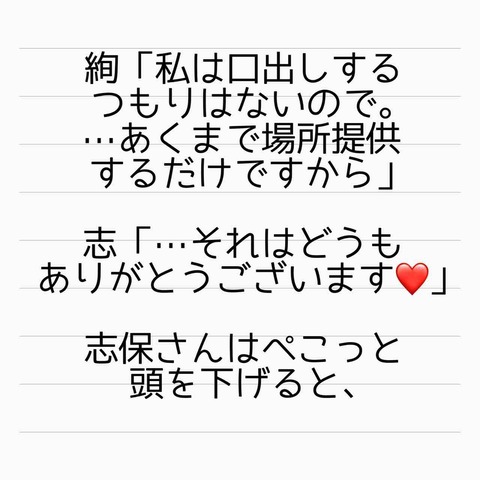 絢「私は口出しする
つもりはないので。
…あくまで場所提供
するだけですから」
志「…それはどうも
ありがとうございます❤️」
志保さんはぺこっと
頭を下げると、